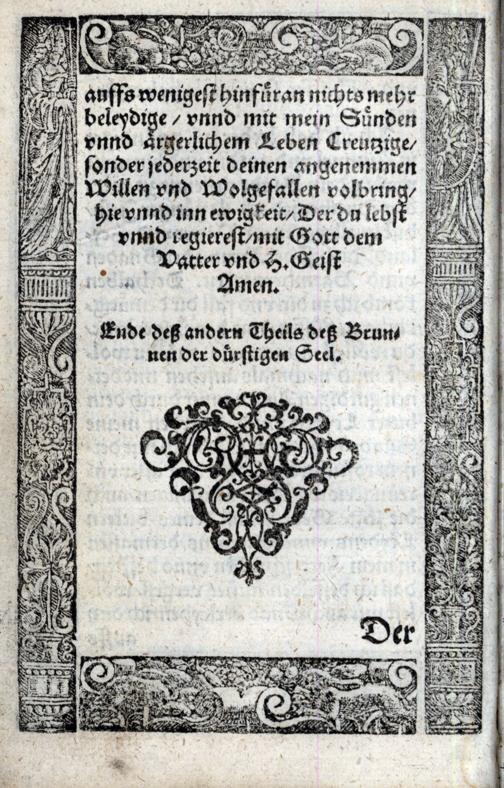 auffs wenigest hinfüran nichts mehr
beleydige / vnnd mit mein Sünden
vnnd ärgerlichem Leben Creutzige /
sonder jederzeit deinen angenemmen
Willen vnd Wolgefallen volbring /
hie vnnd inn ewigkeit / Der du lebst
vnnd regierest / mit Gott dem
Vatter vnd H. Geist
Amen.
Ende deß andern Theils deß Brun⸗
nen der dürstigen Seel.
Der